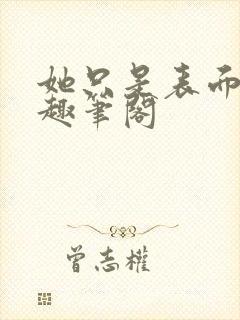 她只是表面
趣笔阁
曾志權